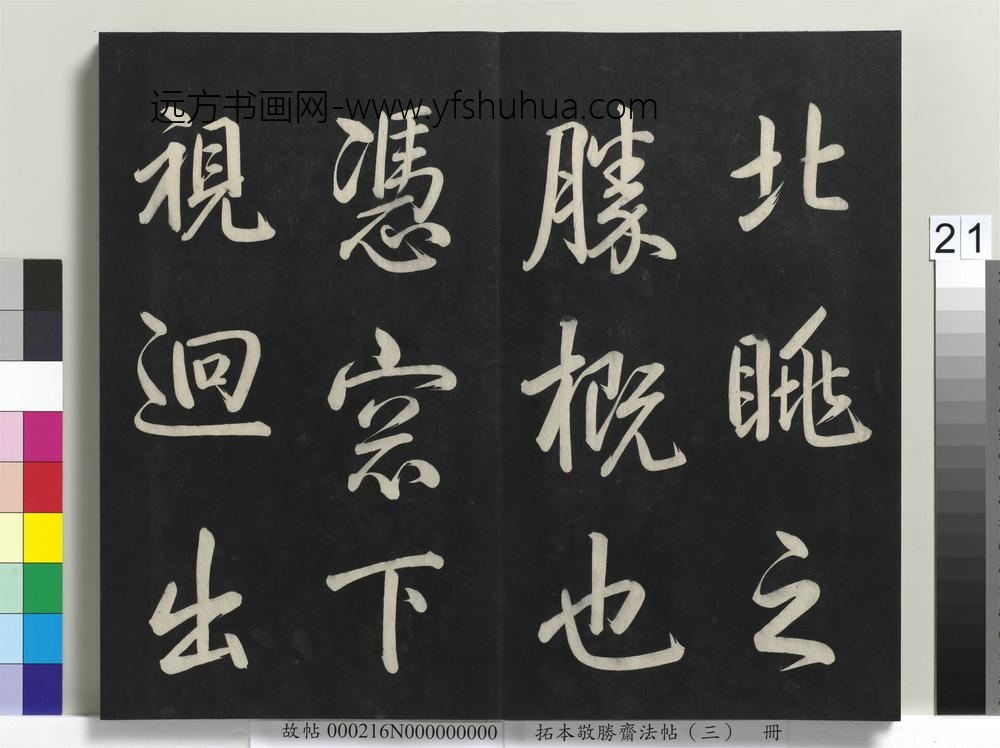 远方书画网-www.yfshuhua.com
北眺之
勝概也
憑窓下
視迥出
21
故帖 000216N000000000 拓本敬勝齋法帖(三) 冊